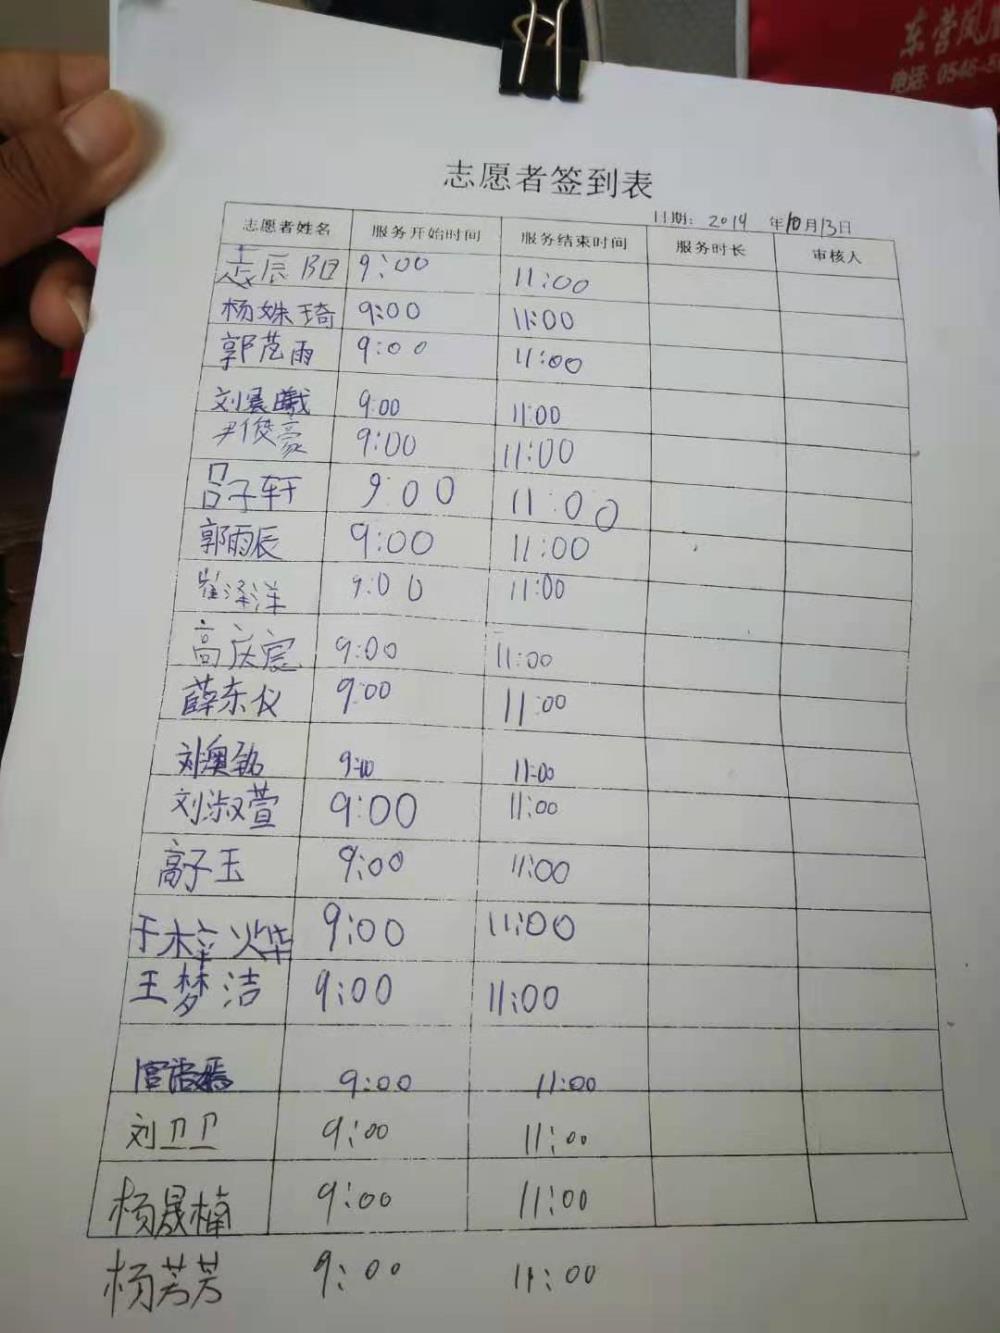 东营凤凰
电话: 0546-8
志愿者签到表
日期: 2019 年10月13日
志愿者姓名 服务开始时间 服务结束时间 服务时长 审核人
9:00 11:00
杨姝琦 9:00 11:00
郭范雨 9:00 11:00
刘晨曦 9:00 11:00
尹俊豪 9:00 11:00
吕子轩 9:00 11:00
郭雨辰 9:00 11:00
崔泽洋 9:00 11:00
高庆宸 9:00 11:00
薛东仪 9:00 11:00
刘澳铭 9:00 11:00
刘淑萱 9:00 11:00
高子玉 9:00 11:00
于梓烨 9:00 11:00
王梦洁 9:00 11:00
9:00 11:00
刘卫卫 9:00 11:00
杨晟楠 9:00 11:00
杨芳芳 9:00 11:00